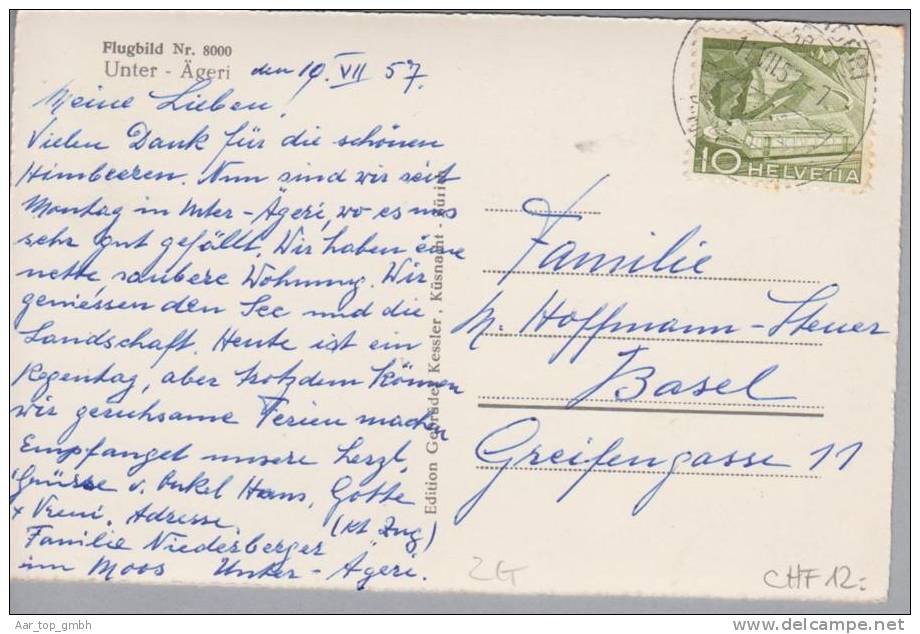 Flugbild Nr. 8000
Unter - Ägeri den 19. VII 57.
Meine Lieben,
Vielen Dank für die schönen
Himbeeren. Nun sind wir seit
Montag in Unter-Ägeri, wo es uns
sehr gut gefällt. Wir haben eine
nette, saubere Wohnung. Wir
geniessen den See und die
Landschaft. Heute ist ein
Regentag, aber trotzdem können
wir geruhsame Ferien machen
Empfanget unsere herzl.
Grüsse v. Onkel Hans, Gotte
+ Vreni. Adresse.
(Kt Zug)
Familie Niederberger
im Moos Unter-Ägeri.
Edition Gebrüder Kessler, Küsnacht - Zürich
10 HELVETIA
Familie
M. Hoffmann-Steuer
Basel
Greifengasse 11
ZG
CHF 12.-
Aar_top_gmbh
www.delcampe.net